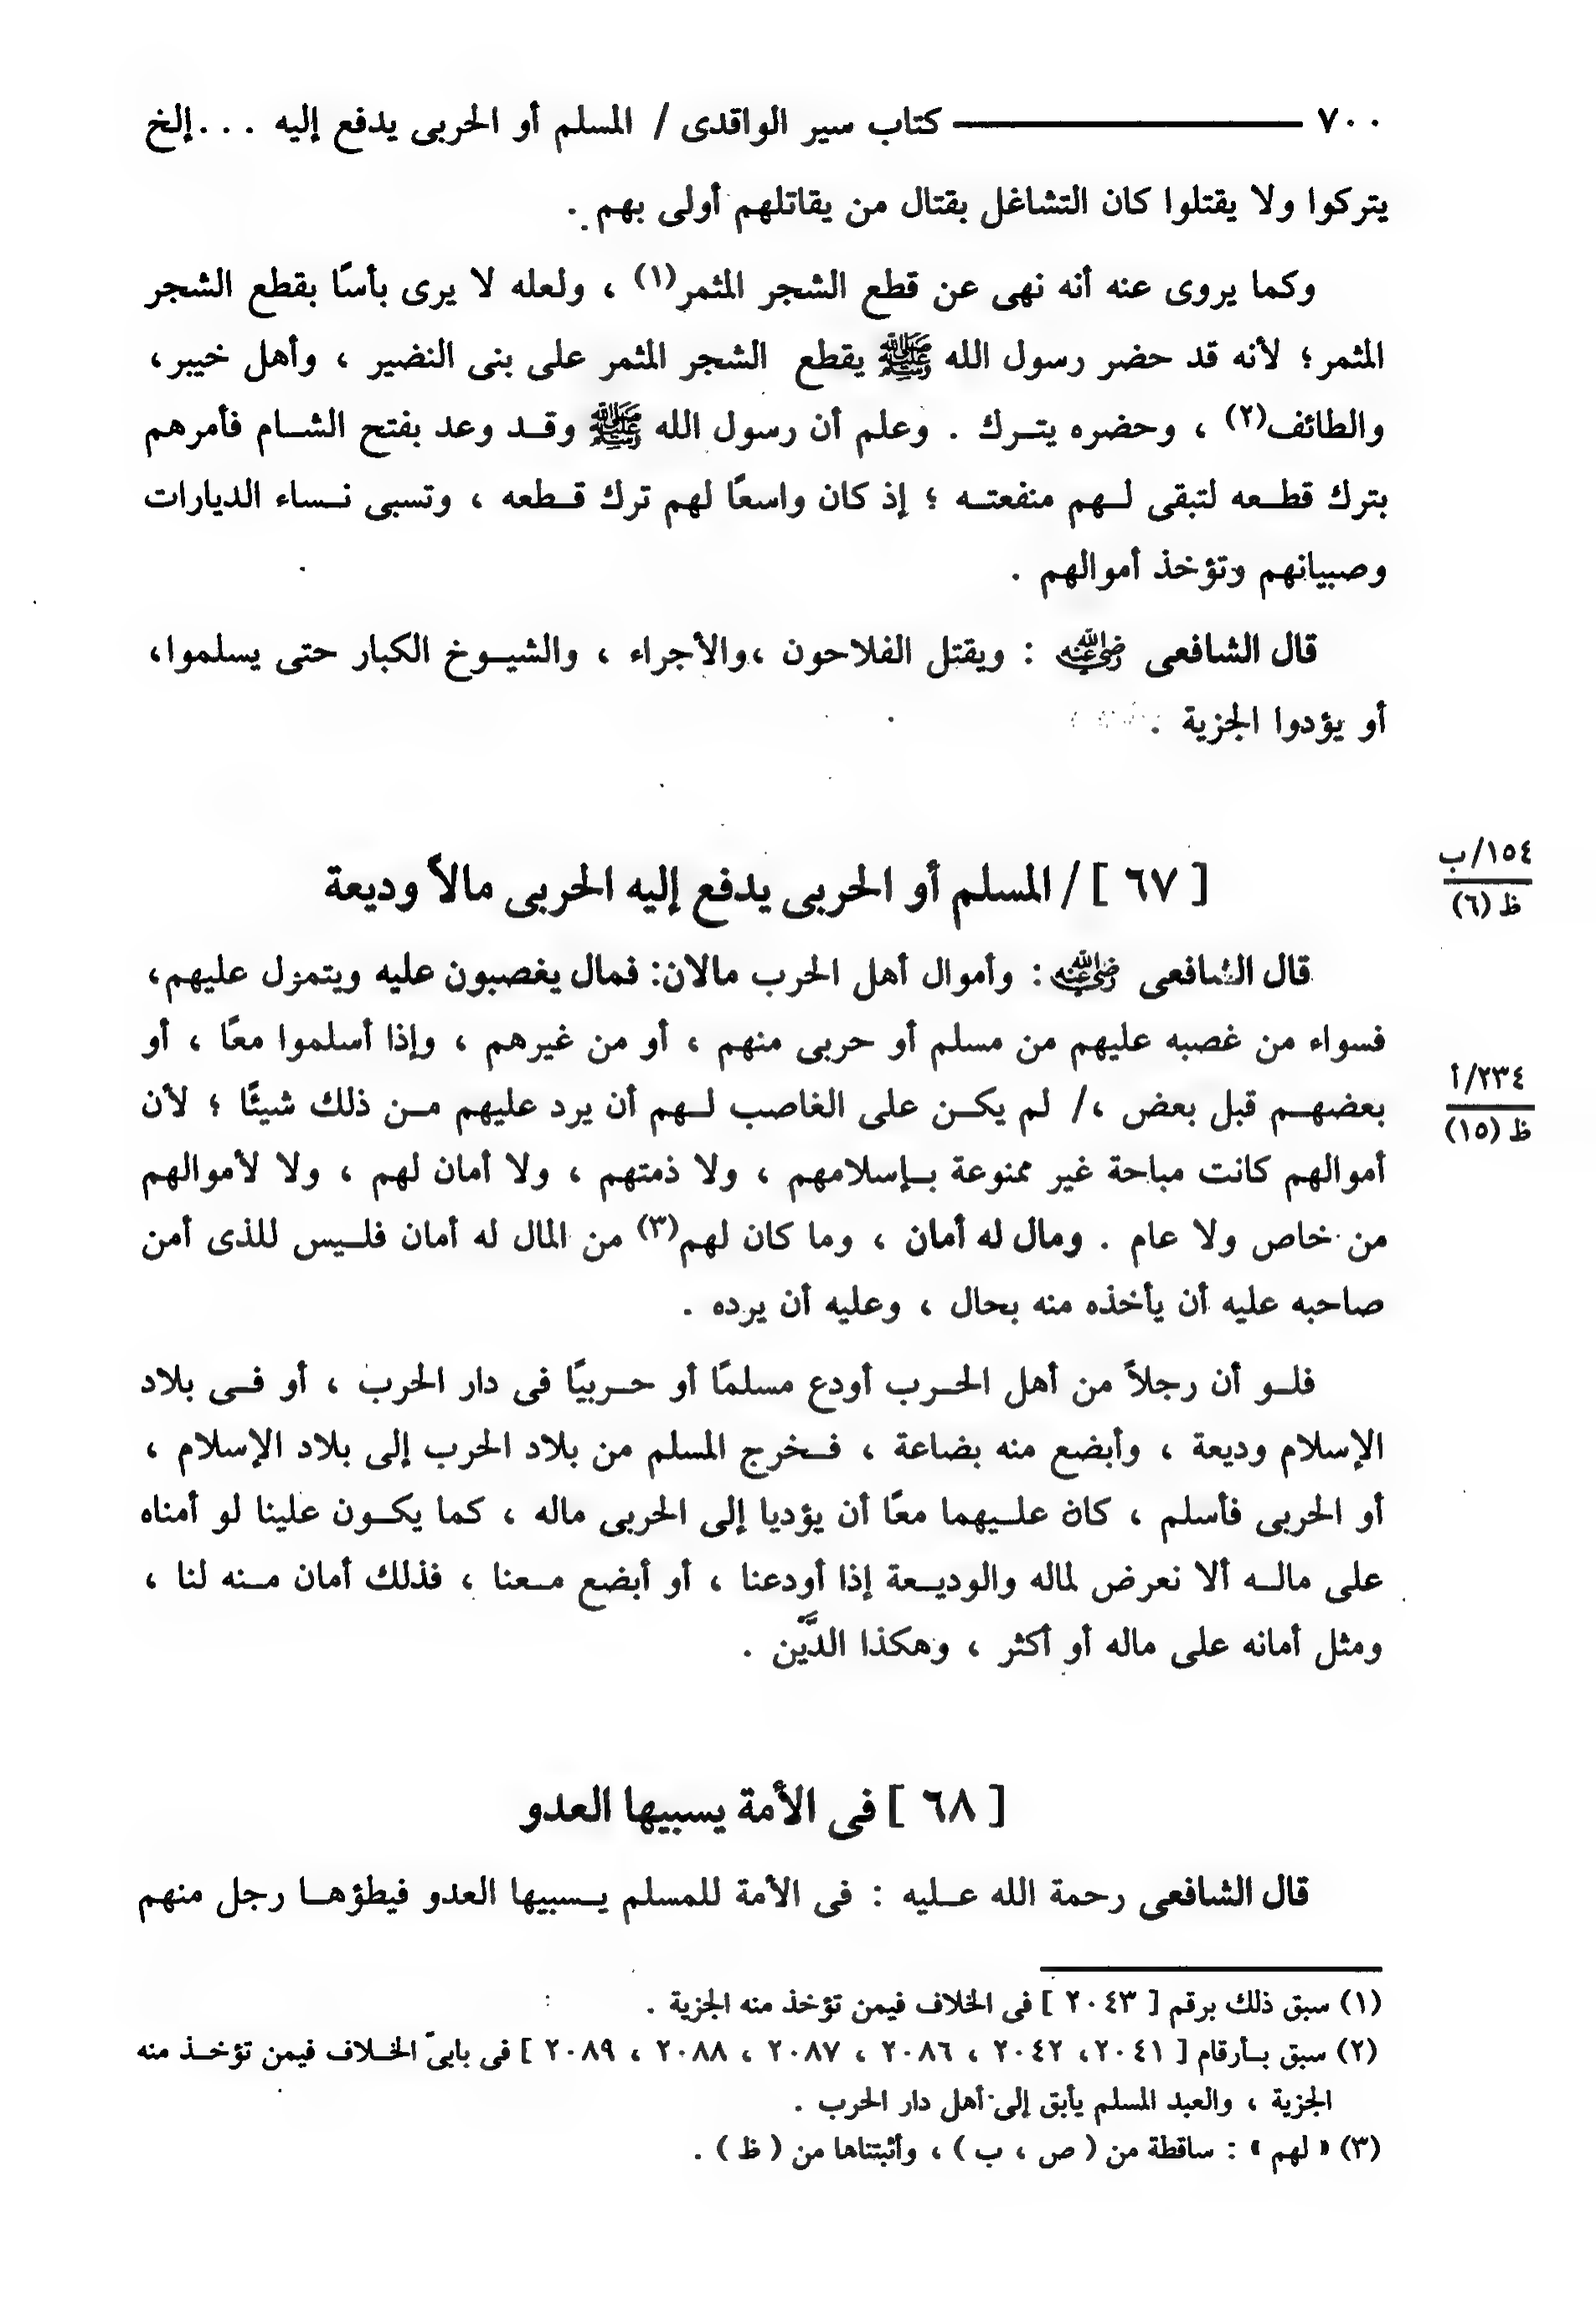 ٧٠٠ كتاب سير الواقدى / المسلم أو الحربى يدفع إليه . . . إلخ
يتركوا ولا يقتلوا كان التشاغل بقتال من يقاتلهم أولى بهم .
وكما يروى عنه أنه نهى عن قطع الشجر المثمر(١) ، ولعله لا يرى بأسًا بقطع الشجر
المثمر؛ لأنه قد حضر رسول الله ﷺ يقطع الشجر المثمر على بنى النضير ، وأهل خيبر،
والطائف(٢) ، وحضره يتـرك . وعلم أن رسول الله ﷺ وقـد وعد بفتح الشـام فأمرهم
بترك قطـعه لتبقى لـهم منفعتـه ؛ إذ كان واسعًا لهم ترك قـطعه ، وتسبى نـساء الديارات
وصبيانهم وتؤخذ أموالهم .
قال الشافعى رضي الله عنه : ويقتل الفلاحون ،والأجراء ، والشيـوخ الكبار حتى يسلموا،
أو يؤدوا الجزية .
١٥٤/ب
ظ (٦)
[ ٦٧ ] / المسلم أو الحربى يدفع إليه الحربى مالاً وديعة
قال الشافعى رضي الله عنه : وأموال أهل الحرب مالان: فمال يغصبون عليه ويتمول عليهم،
فسواء من غصبه عليهم من مسلم أو حربى منهم ، أو من غيرهم ، وإذا أسلموا معًا ، أو
٢٣٤/أ
ظ (١٥)
بعضهـم قبل بعض ،/ لم يكـن على الغاصب لـهم أن يرد عليهم مـن ذلك شيئًا ؛ لأن
أموالهم كانت مباحة غير ممنوعة بـإسلامهم ، ولا ذمتهم ، ولا أمان لهم ، ولا لأموالهم
من خاص ولا عام . ومال له أمان ، وما كان لهم(٣) من المال له أمان فلـيس للذى أمن
صاحبه عليه أن يأخذه منه بحال ، وعليه أن يرده .
فلـو أن رجلاً من أهل الحـرب أودع مسلمًا أو حـربيًا فى دار الحرب ، أو فـى بلاد
الإسلام وديعة ، وأبضع منه بضاعة ، فـخرج المسلم من بلاد الحرب إلى بلاد الإسلام ،
أو الحربى فأسلم ، كان علـيهما معًا أن يؤديا إلى الحربى ماله ، كما يكـون علينا لو أمناه
على مالـه ألا نعرض لماله والوديـعة إذا أودعنا ، أو أبضع مـعنا ، فذلك أمان مـنه لنا ،
ومثل أمانه على ماله أو أكثر ، وهكذا الدَّين .
[ ٦٨ ] فى الأمة يسبيها العدو
قال الشافعى رحمة الله عـليه : فى الأمة للمسلم يـسبيها العدو فيطؤهـا رجل منهم
(١) سبق ذلك برقم [ ٢٠٤٣ ] فى الخلاف فيمن تؤخذ منه الجزية .
(٢) سبق بـأرقام [ ٢٠٤١، ٢٠٤٢ ، ٢٠٨٦ ، ٢٠٨٧ ، ٢٠٨٨ ، ٢٠٨٩ ] فى بابىّ الخـلاف فيمن تؤخـذ منه
الجزية ، والعبد المسلم يأبق إلى أهل دار الحرب .
(٣) « لهم » : ساقطة من ( ص ، ب ) ، وأثبتناها من ( ظ ) .